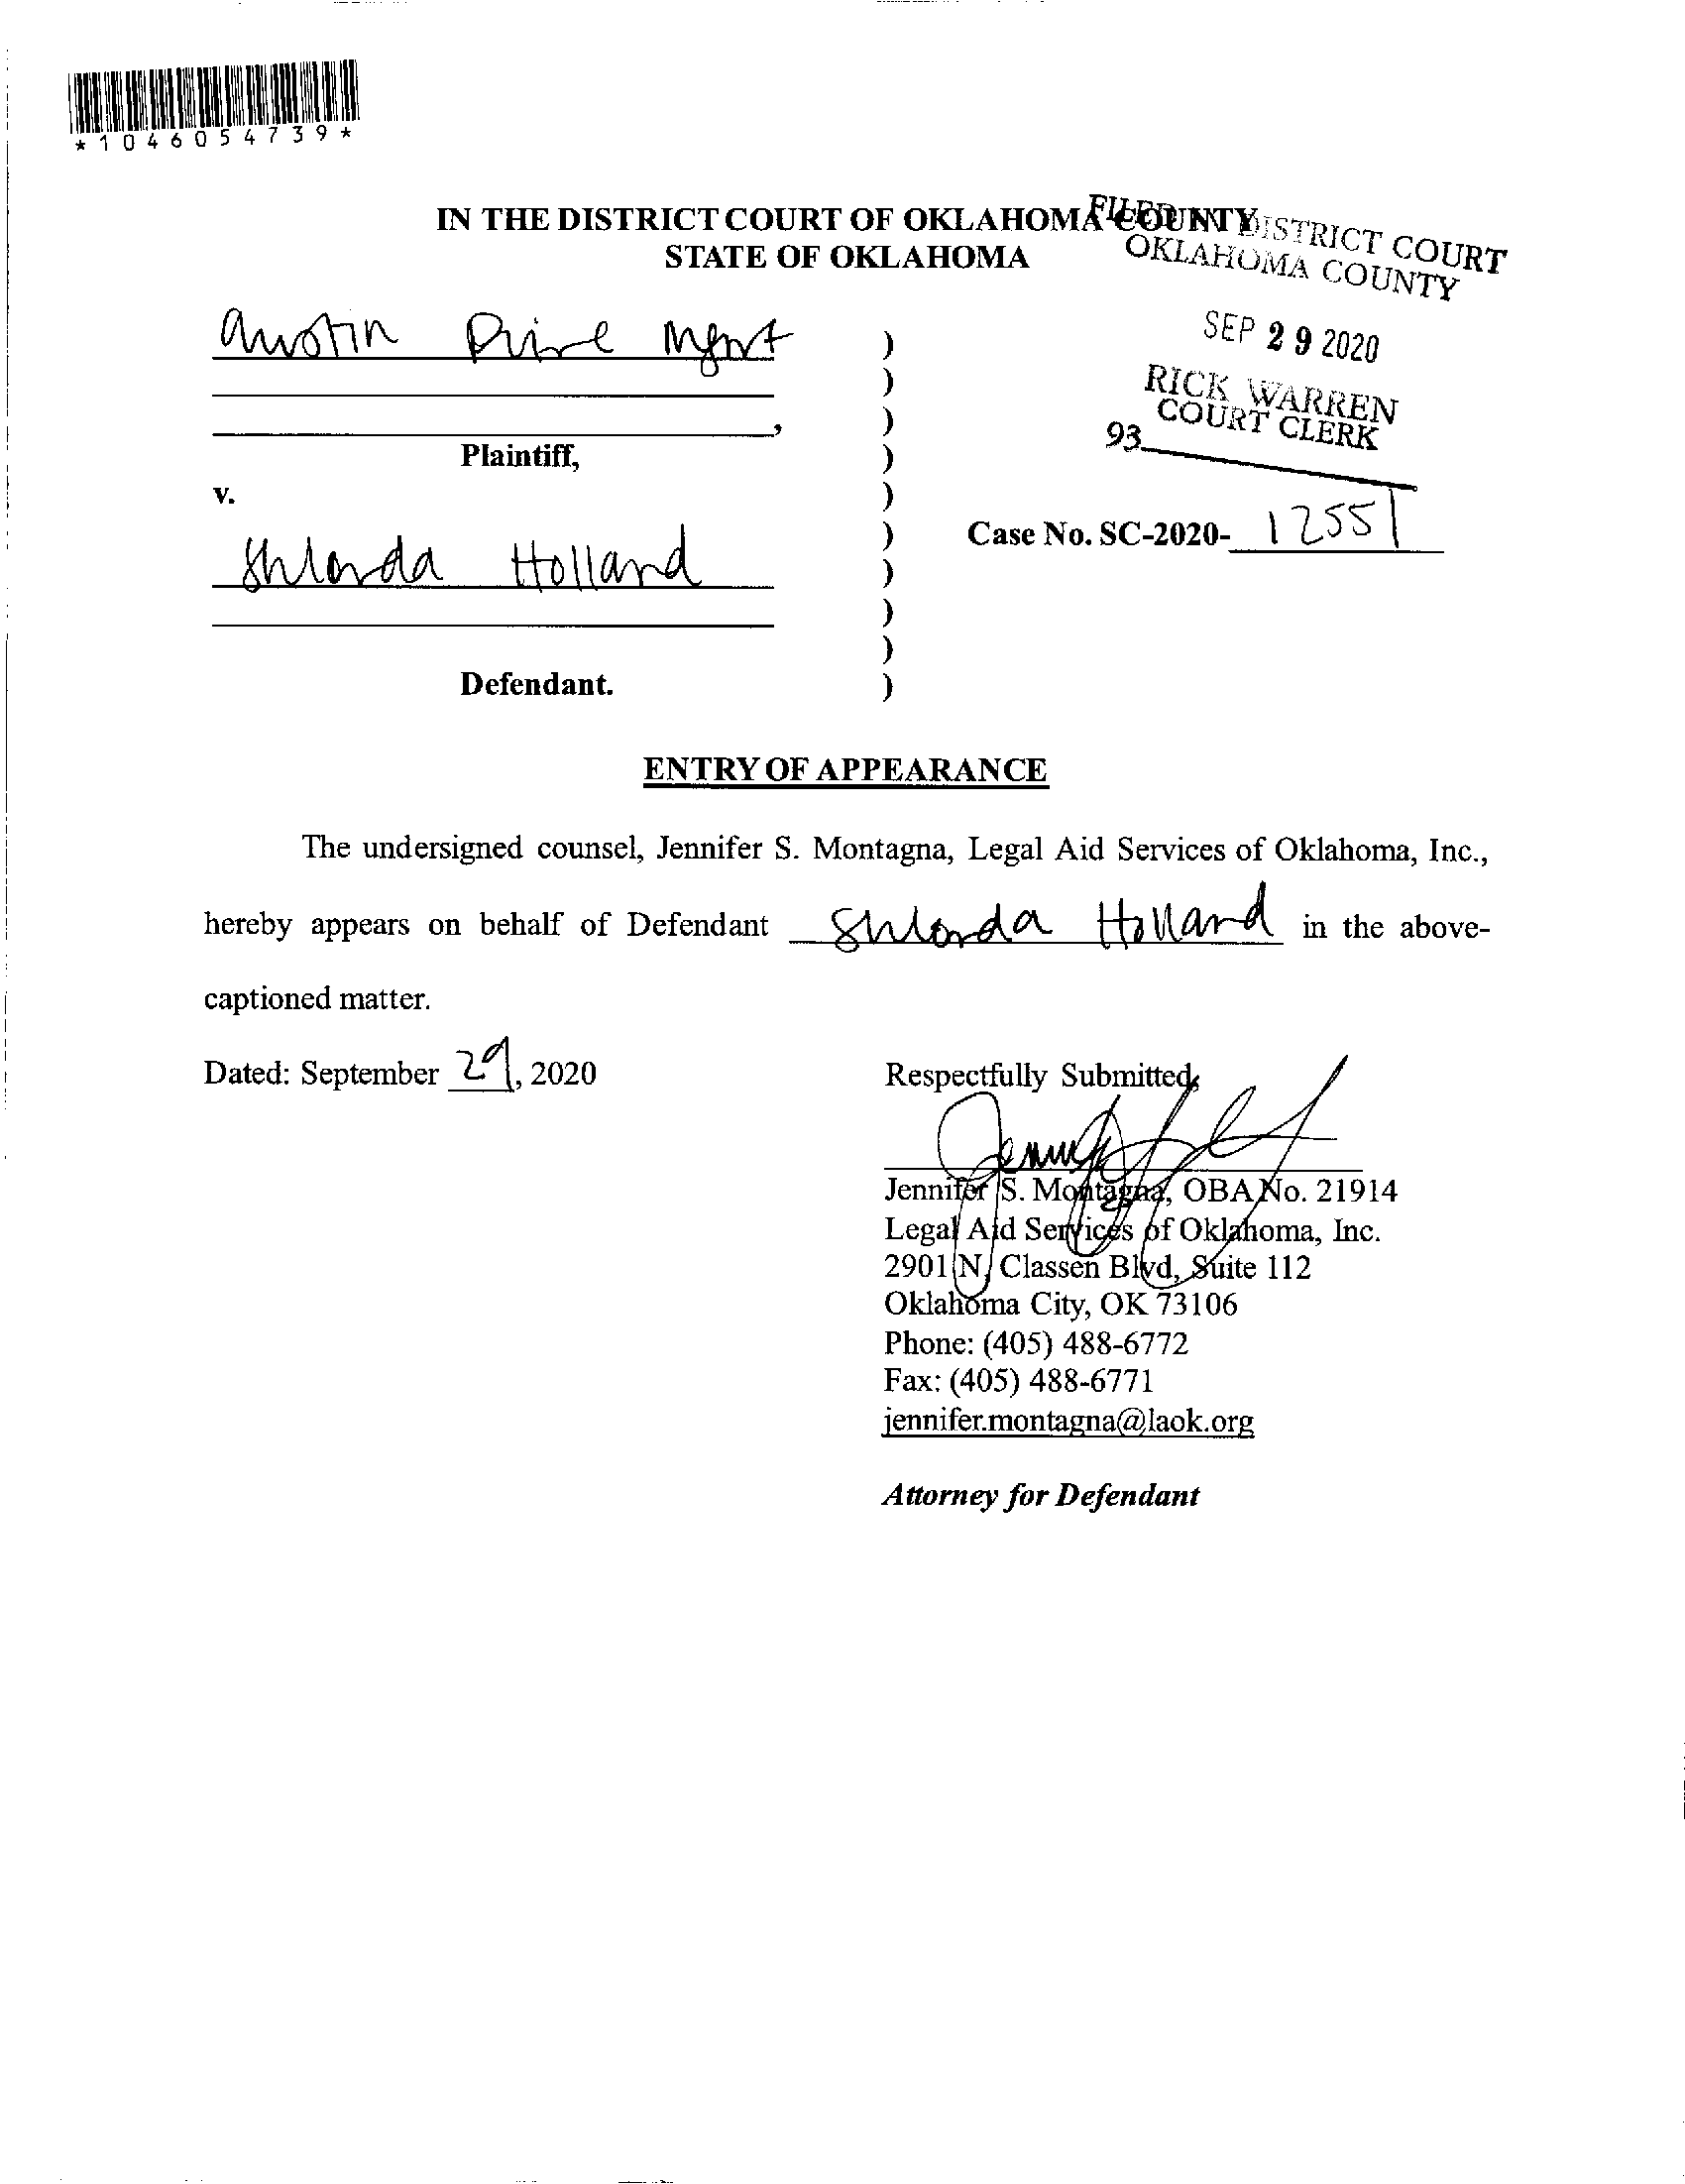 *1046054739*
IN THE DISTRICT COURT OF OKLAHOMA COUNTY
STATE OF OKLAHOMA
FILED IN DISTRICT COURT
OKLAHOMA COUNTY
SEP 29 2020
RICK WARREN
COURT CLERK
93
Austin Pine Mgmt )
)
, )
Plaintiff, )
v. )
Case No. SC-2020- 12551
Shlonda Holland )
)
)
Defendant. )
ENTRY OF APPEARANCE
The undersigned counsel, Jennifer S. Montagna, Legal Aid Services of Oklahoma, Inc.,
hereby appears on behalf of Defendant Shlonda Holland in the above-
captioned matter.
Dated: September 29, 2020
Respectfully Submitted,
Jennifer S. Montagna, OBA No. 21914
Legal Aid Services of Oklahoma, Inc.
2901 N. Classen Blvd, Suite 112
Oklahoma City, OK 73106
Phone: (405) 488-6772
Fax: (405) 488-6771
jennifer.montagna@laok.org
Attorney for Defendant